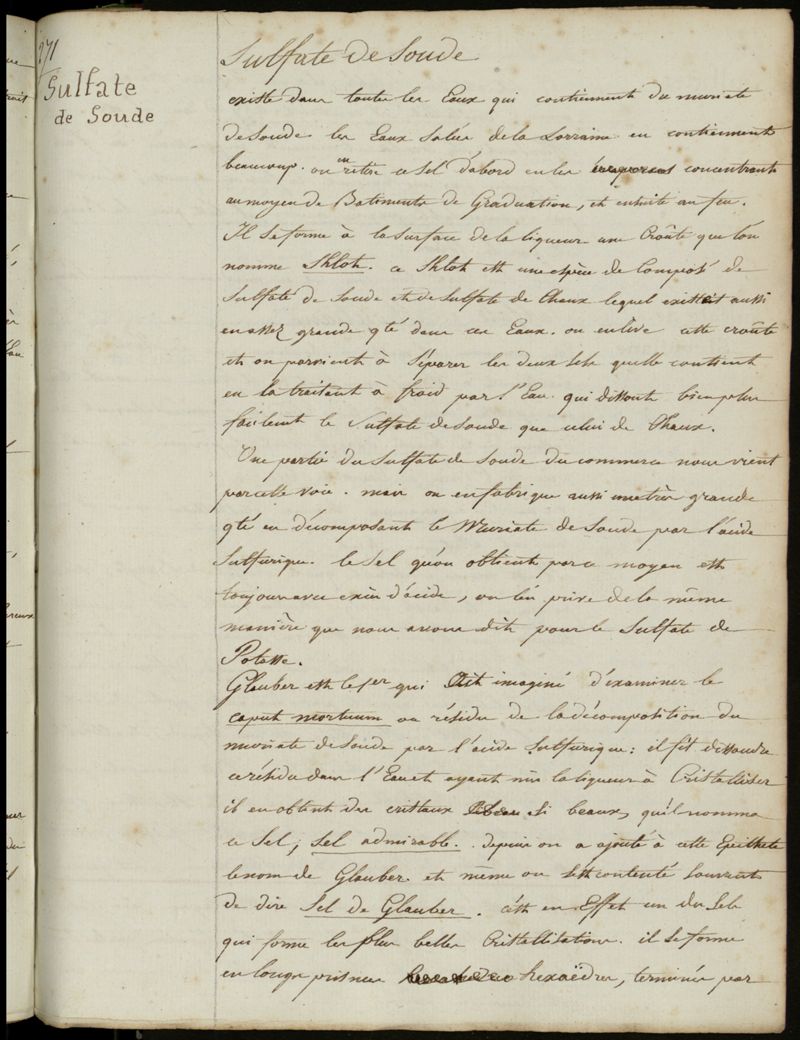 271
Sulfate
de Soude
Sulfate de Soude
existe dans toutes les Eaux qui contiennent du muriate
de Soude les Eaux Salées de la Lorraine en contiennent
beaucoup. on en retire ce Sel d'abord en les concentrant
au moyen de Batiments de Graduation, et ensuite au feu.
Il se forme à la surface de la liqueur une Croûte que l'on
nomme Shlot. ce Shlot est une espèce de Composé de
Sulfate de Soude et de Sulfate de Chaux lequel existait aussi
en assez grande qté dans ces Eaux. on enlève cette croûte
et on parvient à séparer les deux Sels qu'elle contient
en la traitant à froid par l'Eau qui dissout bien plus
facilement le Sulfate de Soude que celui de Chaux.
Une partie du Sulfate de Soude du commerce nous vient
par cette voie. mais on en fabrique aussi une très grande
qté en décomposant le Muriate de Soude par l'acide
Sulfurique. le Sel qu'on obtient par ce moyen est
toujours avec excès d'acide, on l'en prive de la même
manière que nous avons dit pour le Sulfate de
Potasse.
Glauber est le 1er qui ait imaginé d'examiner le
caput mortuum ou résidu de la décomposition du
muriate de Soude par l'acide Sulfurique: il fit dissoudre
ce résidu dans l'Eau et ayant mis la liqueur à Cristalliser
il en obtint des cristaux si beaux, qu'il nomma
ce Sel, Sel admirable. depuis on a ajouté à cette Epithete
le nom de Glauber et même on s'est contenté souvent
de dire Sel de Glauber. c'est en Effet un des Sels
qui forme les plus belles Cristallisations. il se forme
en longs prismes hexaëdres, terminés par